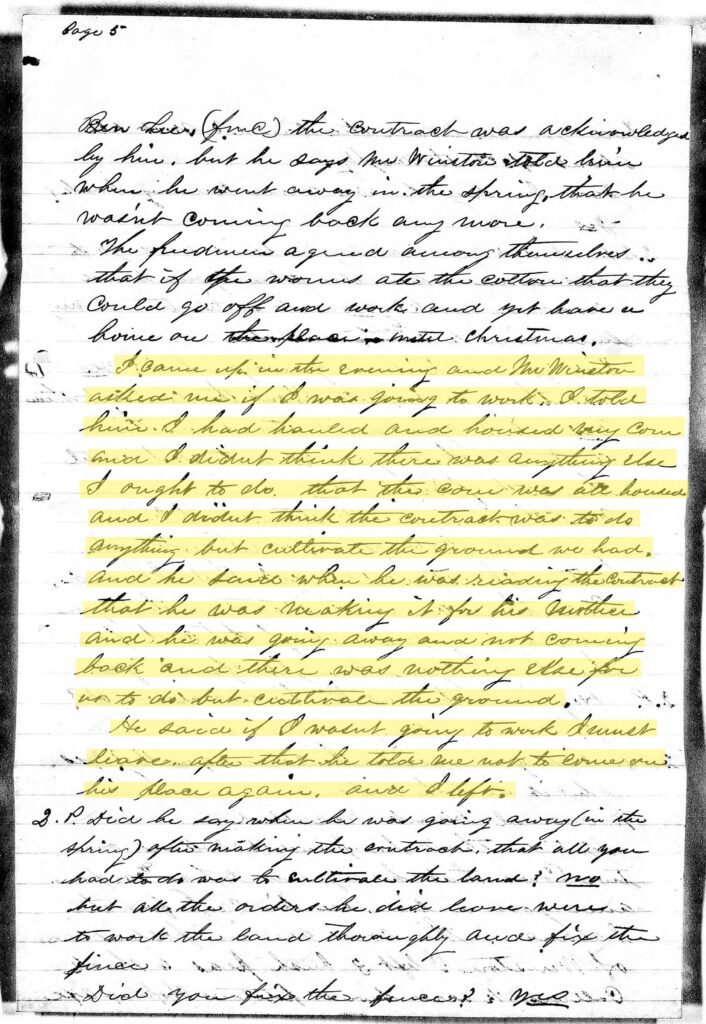 Page 5
Ben Lee, (fmc) the contract was acknowledged
by him, but he says Mr Winston told him
when he went away in the spring, that he
wasn't coming back any more.
The freedmen agreed among themselves
that if the worms ate the cotton that they
could go off and work and yet have a
home on the place until Christmas.
I came up in the evening and Mr Winston
asked me if I was going to work. I told
him I had hauled and housed my corn
and I didnt think there was anything else
I ought to do. that the corn was all housed
and I didnt think the contract was to do
anything but cultivate the ground we had.
and he said when he was reading the contract
that he was making it for his Mother
and he was going away and not coming
back and there was nothing else for
us to do but cultivate the ground.
He said if I wasnt going to work I must
leave. after that he told me not to come on
his place again. and I left.
2. P. Did he say when he was going away (in the
spring) after making the contract, that all you
had to do was to cultivate the land? no
but all the orders he did leave were
to work the land thoroughly and fix the
fince
Did you fix the fence? yes